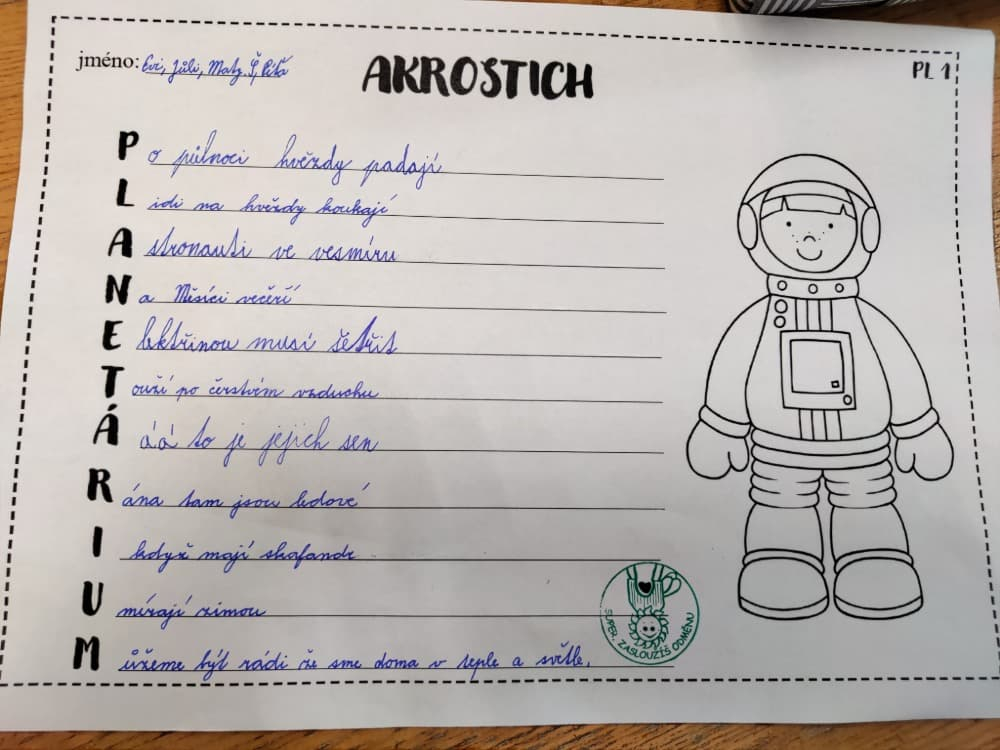 jméno: Evi, Júli, Maty. Š, Píťa
AKROSTICH
PL 1
Po půlnoci hvězdy padají
Lidi na hvězdy koukají
Astronauti ve vesmíru
Na Měsíci večeří
Elektřinou musí šetřit
Touží po čerstvém vzduchu
Áááá to je jejich sen
Rána tam jsou ledové
I když mají skafandr
Umírají zimou
Můžeme být rádi že sme doma v teple a světle.
SUPER, ZASLOUŽÍŠ ODMĚNU